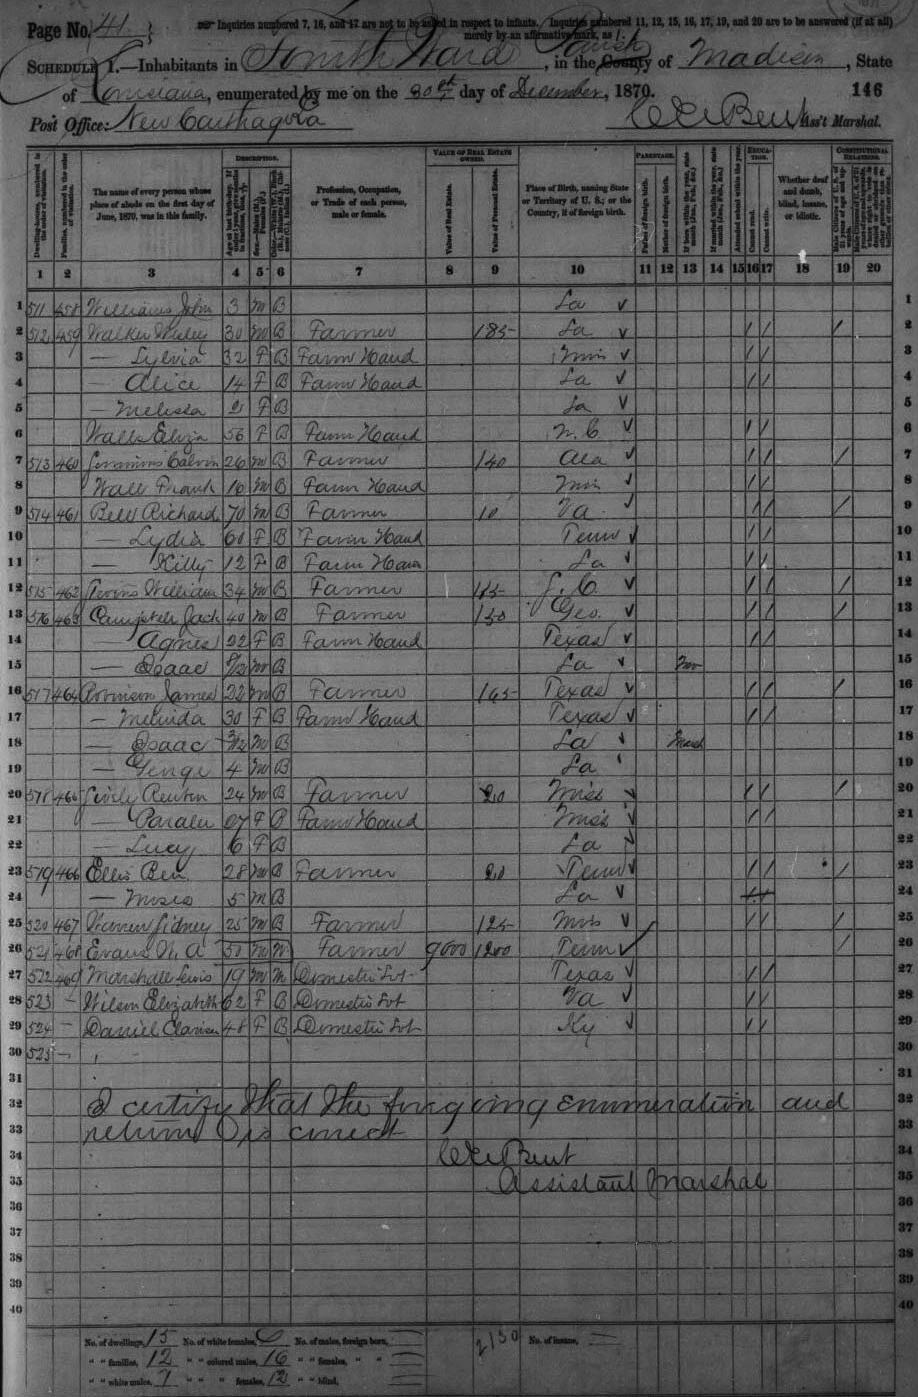 Page No. 41
Inquiries numbered 7, 16, and 17 are not to be asked in respect to infants. Inquiries numbered 11, 12, 15, 16, 17, 19, and 20 are to be answered (if at all)
merely by an affirmative mark, as /.
SCHEDULE 1.—Inhabitants in Fourth Ward, in the County Parish of Madison, State
of Louisiana, enumerated by me on the 30th day of December, 1870. 146
Post Office: New Carthage La Ass't Marshal.
DESCRIPTION. VALUE OF REAL ESTATE OWNED. PARENTAGE. EDUCATION. CONSTITUTIONAL RELATIONS.
Dwelling-houses, numbered in the order of visitation. Families, numbered in the order of visitation. The name of every person whose place of abode on the first day of June, 1870, was in this family. Profession, Occupation, or Trade of each person, male or female. Value of Real Estate. Value of Personal Estate. Place of Birth, naming State or Territory of U. S.; or the Country, if of foreign birth. Father of foreign birth. Mother of foreign birth. If born within the year, state month (Jan., Feb., &c.) If married within the year, state month (Jan., Feb., &c.) Attended school within the year. Cannot read. Cannot write. Whether deaf and dumb, blind, insane, or idiotic.
1 2 3 4 5 6 7 8 9 10 11 12 13 14 15 16 17 18 19 20
1 511 458 Williams John 3 M B La 1
2 512 459 Walker Wiley 30 M B Farmer 185 La / / / 2
3 — Sylvia 32 F B Farm Hand Miss / / 3
4 — Alice 14 F B Farm Hand La / / 4
5 — Melissa 2 F B La 5
6 Walls Eliza 56 F B Farm Hand N. C / / 6
7 513 460 Simmons Calvin 26 M B Farmer 140 Ala / / / 7
8 Wall Frank 16 M B Farm Hand Miss / / 8
9 514 461 Bell Richard 70 M B Farmer 10 Va / / / 9
10 — Lydia 60 F B Farm Hand Tenn / / 10
11 — Kitty 12 F B Farm Hand La / / 11
12 515 462 William 34 M B Farmer S. C / / / 12
13 516 463 Jack 40 M B Farmer 130 Geo. / / / 13
14 Agnes 22 F B Farm Hand Texas / / 14
15 — Isaac M B La Nov 15
16 517 464 Robinson James 22 M B Farmer 165 Texas / / / 16
17 — Melvida 30 F B Farm Hand Texas / / 17
18 — Isaac 3/12 M B La March 18
19 — George 4 M B La 19
20 518 465 Reuben 24 M B Farmer 20 Miss / / / 20
21 — 27 F B Farm Hand Miss / / 21
22 — Lucy 6 F B La 22
23 519 466 Ellis Ben 28 M B Farmer 20 Tenn / / / 23
24 — Moses 5 M B La 24
25 520 467 Warren Sidney 25 M B Farmer 125 Miss / / / 25
26 521 468 Evans N. A 50 M W Farmer 9000 1200 Tenn / 26
27 522 469 Marshall Lewis 19 M M Domestic Svt Texas / / 27
28 523 — Wilson Elizabeth 62 F B Domestic Svt Va / / 28
29 524 — Daniel 48 F B Domestic Svt Ky / / 29
30 525 — 30
31 31
32 I certify that the foregoing enumeration and 32
33 return is correct 33
34 34
35 Assistant Marshal 35
36 36
37 37
38 38
39 39
40 40
No. of dwellings, 15 No. of white females, 0 No. of males, foreign born, — 2150 No. of insane, —
" " families, 12 " " colored males, 16 " " females, " " —
" " white males, " " " females, 12 " " blind, —